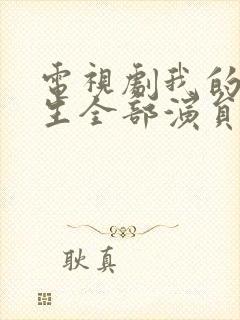 電視劇我的
生全部演員
耿真